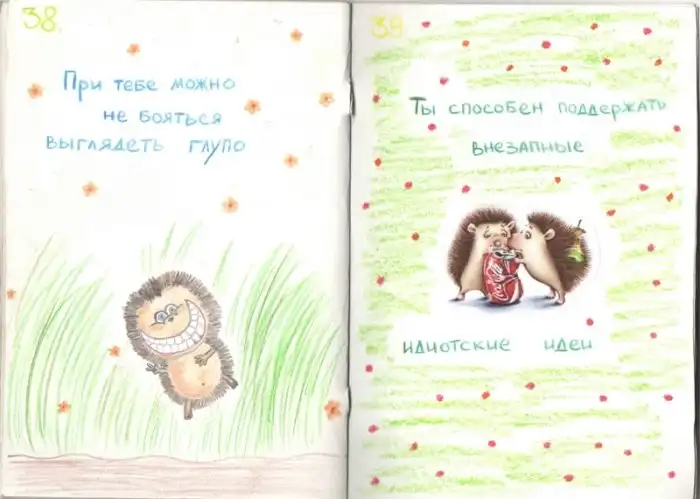 38
При тебе можно
не бояться
выглядеть глупо
39
Ты способен поддержать
внезапные
идиотские идеи